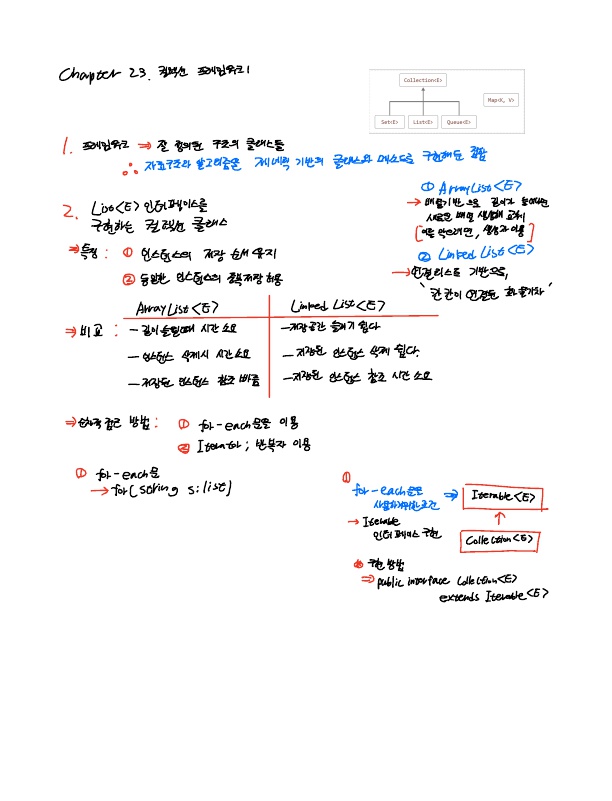 Chapter 23. 컬렉션 프레임워크 1
Collection<E>
Map<K, V>
Set<E> List<E> Queue<E>
1. 프레임워크 ⇒ 잘 정의된 구조의 클래스들
∴ 자료구조와 알고리즘을 제네릭 기반의 클래스와 메소드로 구현해둔 집합
2. List<E> 인터페이스를
구현하는 컬렉션 클래스
⇒ 특징 : ① 인스턴스의 저장 순서 유지
② 동일한 인스턴스의 중복저장 허용
① ArrayList<E>
→ 배열기반으로 길이가 늘어나면
새로운 배열 생성해 교체
[이를 막으려면, 생성자 이용]
② Linked List<E>
→ 연결리스트 기반으로,
' 칸 칸이 연결된 화물기차 '
ArrayList<E> Linked List<E>
⇒ 비교 : – 길이 늘릴때 시간 소요 – 저장공간 늘리기 쉽다
– 인스턴스 삭제시 시간 소요 – 저장된 인스턴스 삭제 쉽다.
– 저장된 인스턴스 참조 빠름 – 저장된 인스턴스 참조 시간 소요
⇒ 순차적 접근 방법 : ① for-each문을 이용
② Iterator ; 반복자 이용
① for-each문
→ for(String s : list)
①
for-each문을 ⇒ Iterable<E>
사용하기위한 조건
→ Iterable
인터페이스 구현
Collection<E>
구현 방법
⇒ public interface Collection<E>
extends Iterable<E>